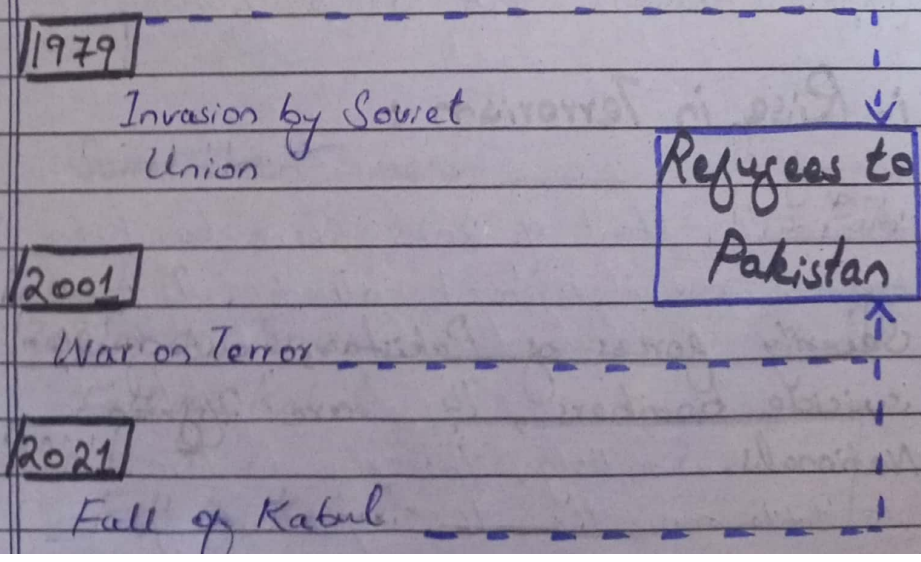 1979
Invasion by Soviet
Union
Refugees to
Pakistan
2001
War on Terror
2021
Fall of Kabul